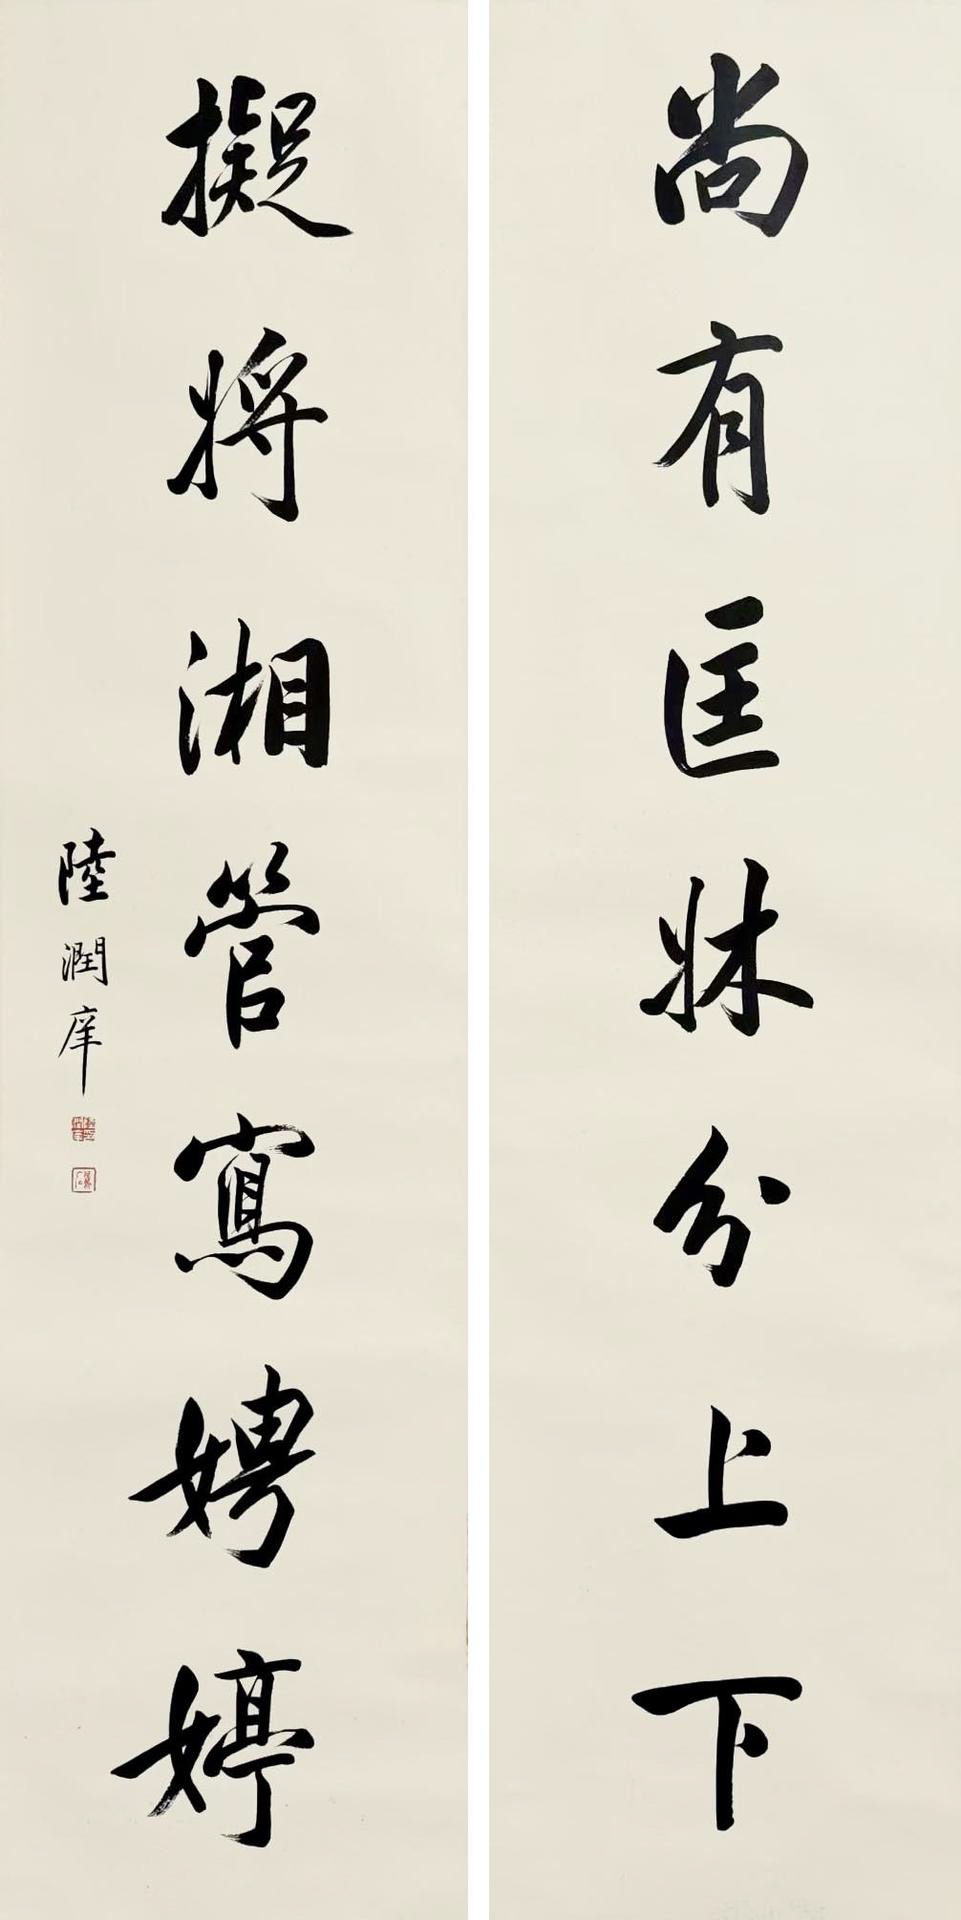 尚有匡牀分上下
擬將湘管寫娉婷
陸潤庠